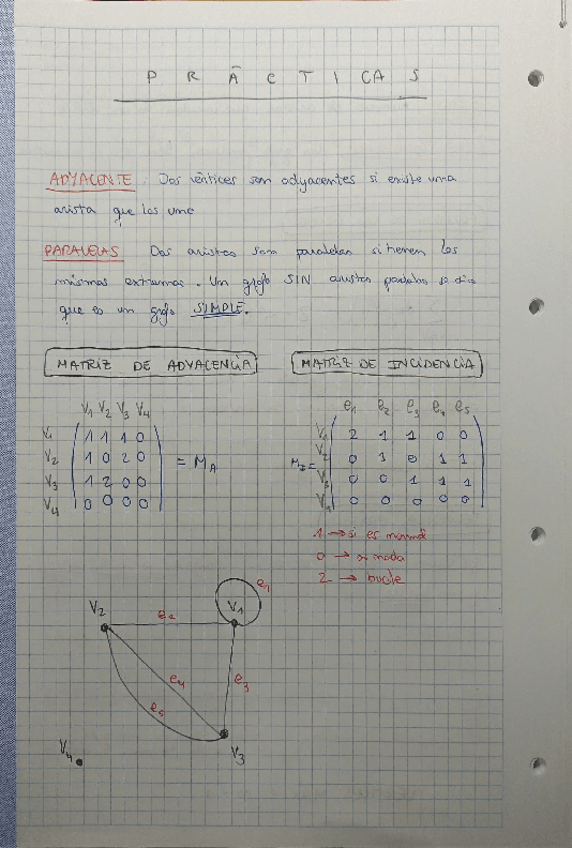 PRÁCTICAS
ADYACENTE: Dos vértices son adyacentes si existe una
arista que los une
PARALELAS Dos aristas son paralelas si tienen los
mismos extremos. Un grafo SIN aristas paralelas se dice
que es un grafo SIMPLE.
MATRIZ DE ADYACENCIA
MATRIZ DE INCIDENCIA
V1 V2 V3 V4
V1 1 1 1 0
V2 1 0 2 0 = MA
V3 1 2 0 0
V4 0 0 0 0
e1 e2 e3 e4 e5
V1 2 1 1 0 0
V2 0 1 0 1 1
MI =
V3 0 0 1 1 1
V4 0 0 0 0 0
1 → si es
0 → nada
2 → bucle
e1
V2 e2 V1
e4 e3
e5
V4 V3